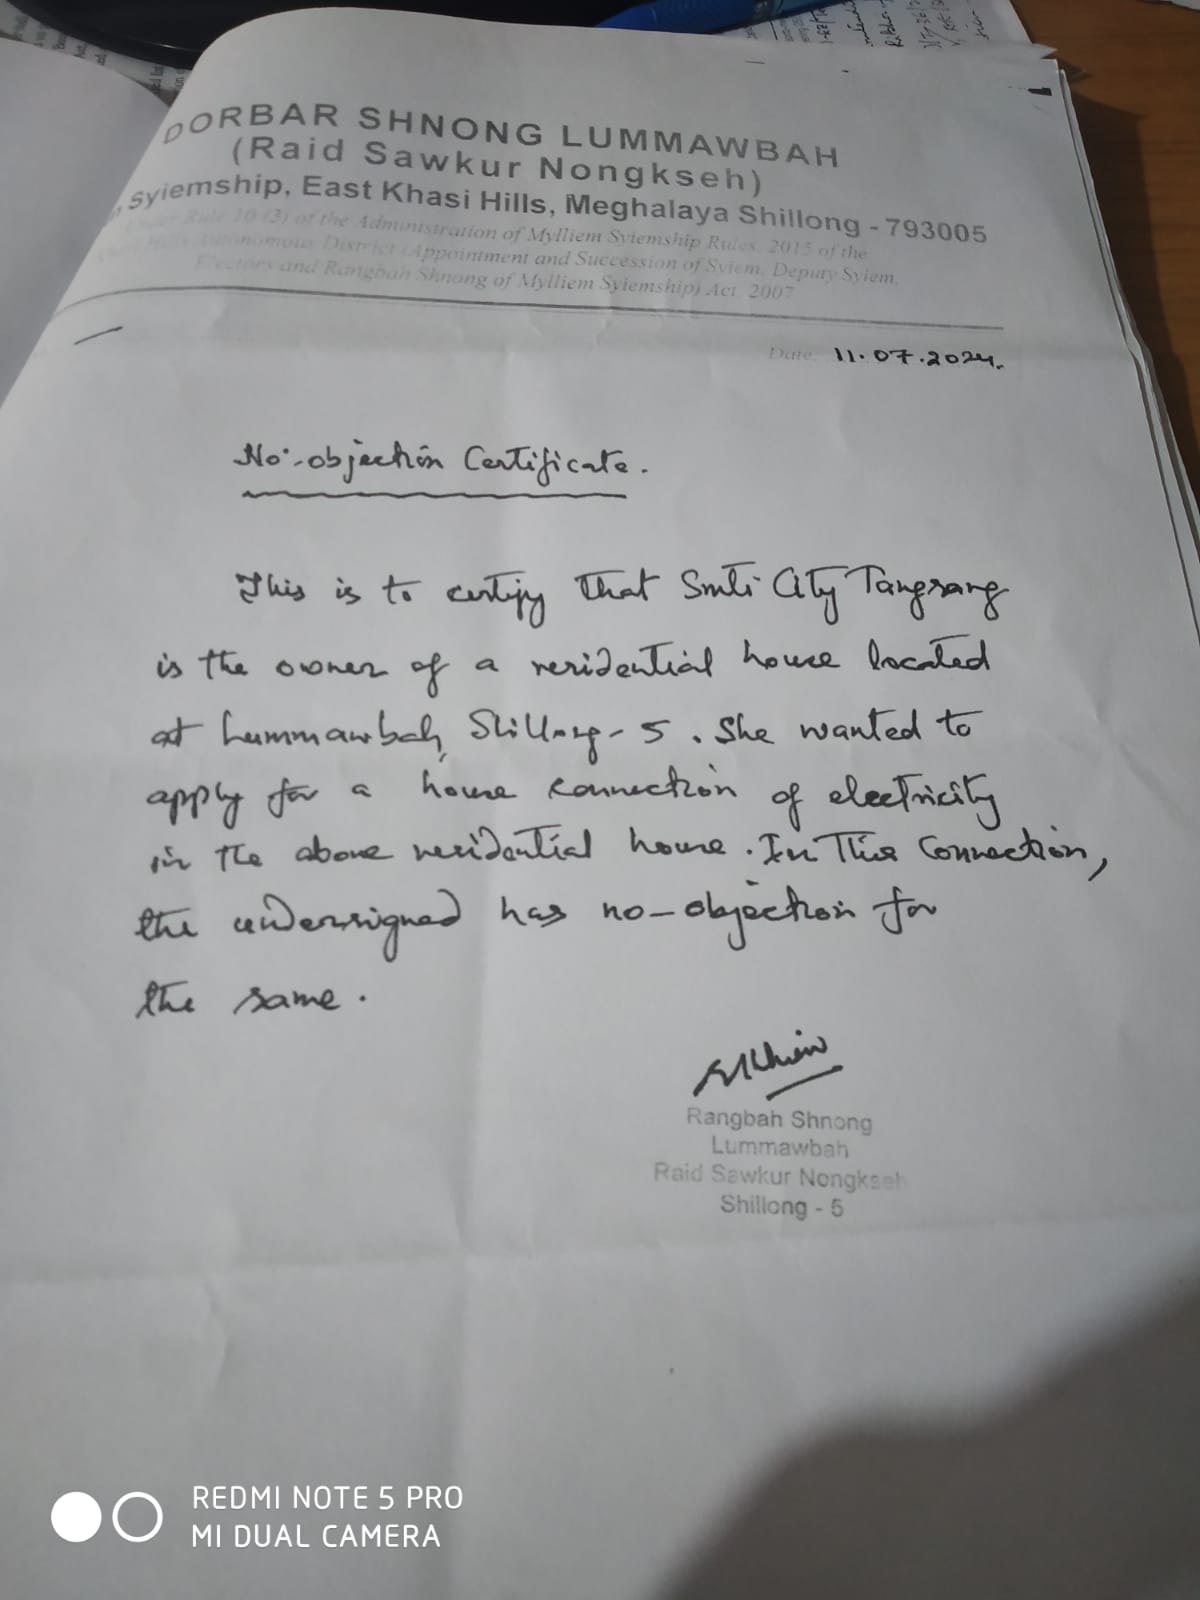 DORBAR SHNONG LUMMAWBAH
(Raid Sawkur Nongkseh)
Syiemship, East Khasi Hills, Meghalaya Shillong - 793005
Rule 10 (3) of the Administration of Mylliem Syiemship Rules, 2015 of the
Hills Autonomous District (Appointment and Succession of Syiem, Deputy Syiem,
Electors and Rangbah Shnong of Mylliem Syiemship) Act, 2007
Date: 11.07.2024.
No-objection Certificate.
This is to certify that Smti City Tangsang
is the owner of a residential house located
at Lummawbah, Shillong - 5. She wanted to
apply for a house connection of electricity
in the above residential house. In This Connection,
the undersigned has no-objection for
the same.
Rangbah Shnong
Lummawbah
Raid Sawkur Nongkseh
Shillong - 5
REDMI NOTE 5 PRO
MI DUAL CAMERA